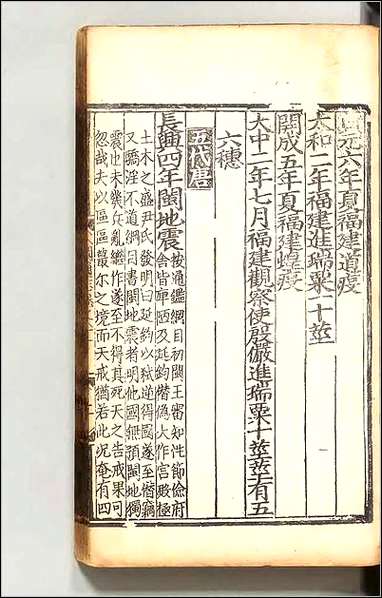 貞元六年夏福建道疫
太和二年福建進瑞粟一十莖
開成五年夏福建蝗疫
大中二年七月福建觀察使殷儼進瑞粟十莖莖有五
六穗
五代唐
長興四年閩地震
按通鑑綱目初閩王審知性節儉府
舍皆庳陋及延鈞僭偽大作宮殿極
土木之盛尹氏發明曰延鈞以弒逆得國遂至僭竊
又驕淫不道綱目書閩地震者明他國無預閩地獨
震也未幾兵亂繼作遂至不得其死天之告戒果可
忽哉夫以區區蕞尔之境而天戒猶若此况奄有四